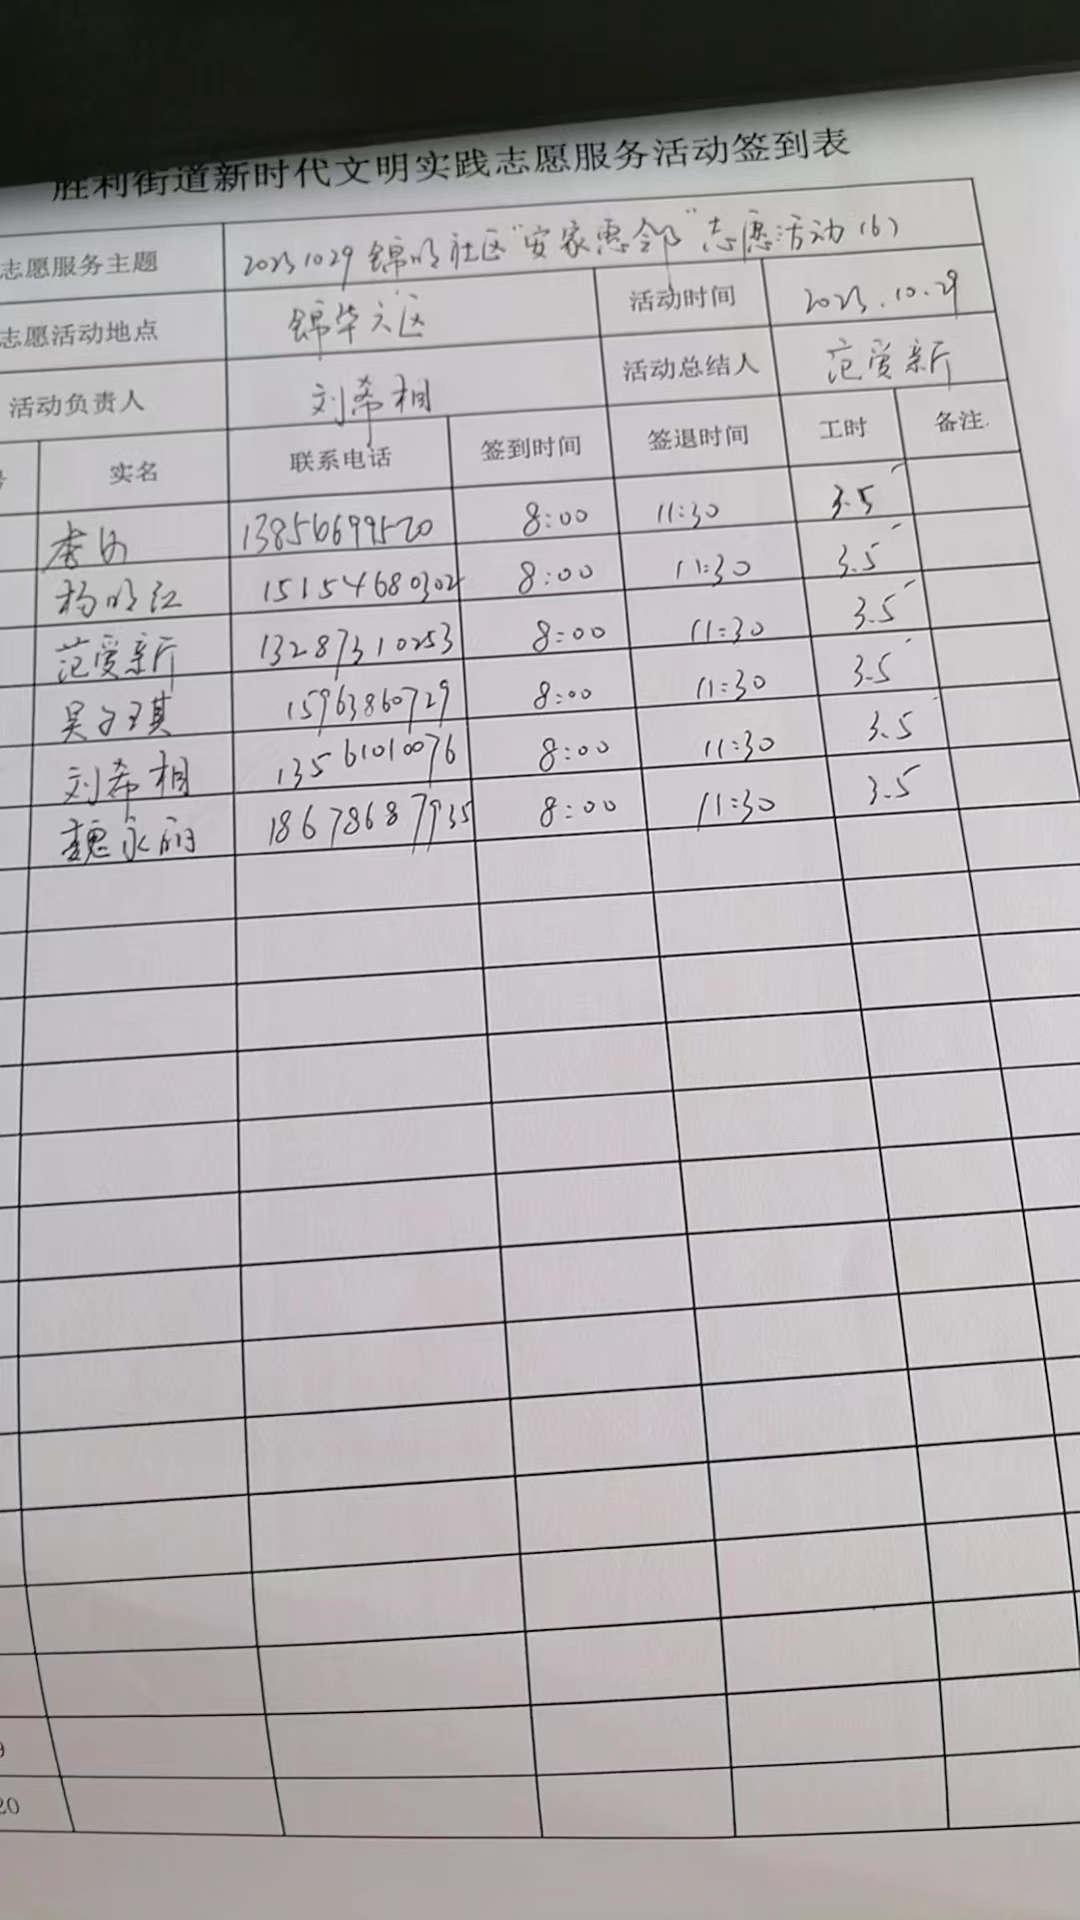 胜利街道新时代文明实践志愿服务活动签到表
志愿服务主题 20231029锦明社区"安家惠邻"志愿活动(6)
志愿活动地点 锦华六区 活动时间 2023.10.29
活动负责人 刘希相 活动总结人 范爱新
号 实名 联系电话 签到时间 签退时间 工时 备注
8:00 11:30 3.5
杨明红 15154680302 8:00 11:30 3.5
范爱新 13287310253 8:00 11:30 3.5
吴子琪 15963860729 8:00 11:30 3.5
刘希相 13561010076 8:00 11:30 3.5
魏永丽 18678687935 8:00 11:30 3.5
9
20